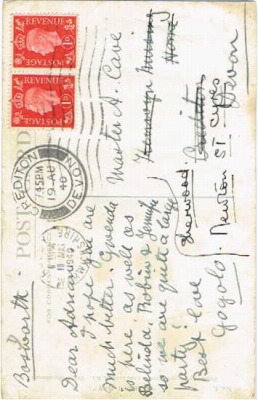 Bosworth.
Dear Adrian
I hope you are
much better. Gwenda
is here as well as
Belinda, Robin &
so we are quite a large
party.
Best love
Gogolo.
POST CARD
Master A. Cave
Nursing
Home
Sherwood
Crediton
Newton St Cyres
Devon
CREDITON
7.45PM
19 AU
40
DEVON
POSTAGE REVENUE
1D 1D
POSTAGE REVENUE
1D 1D